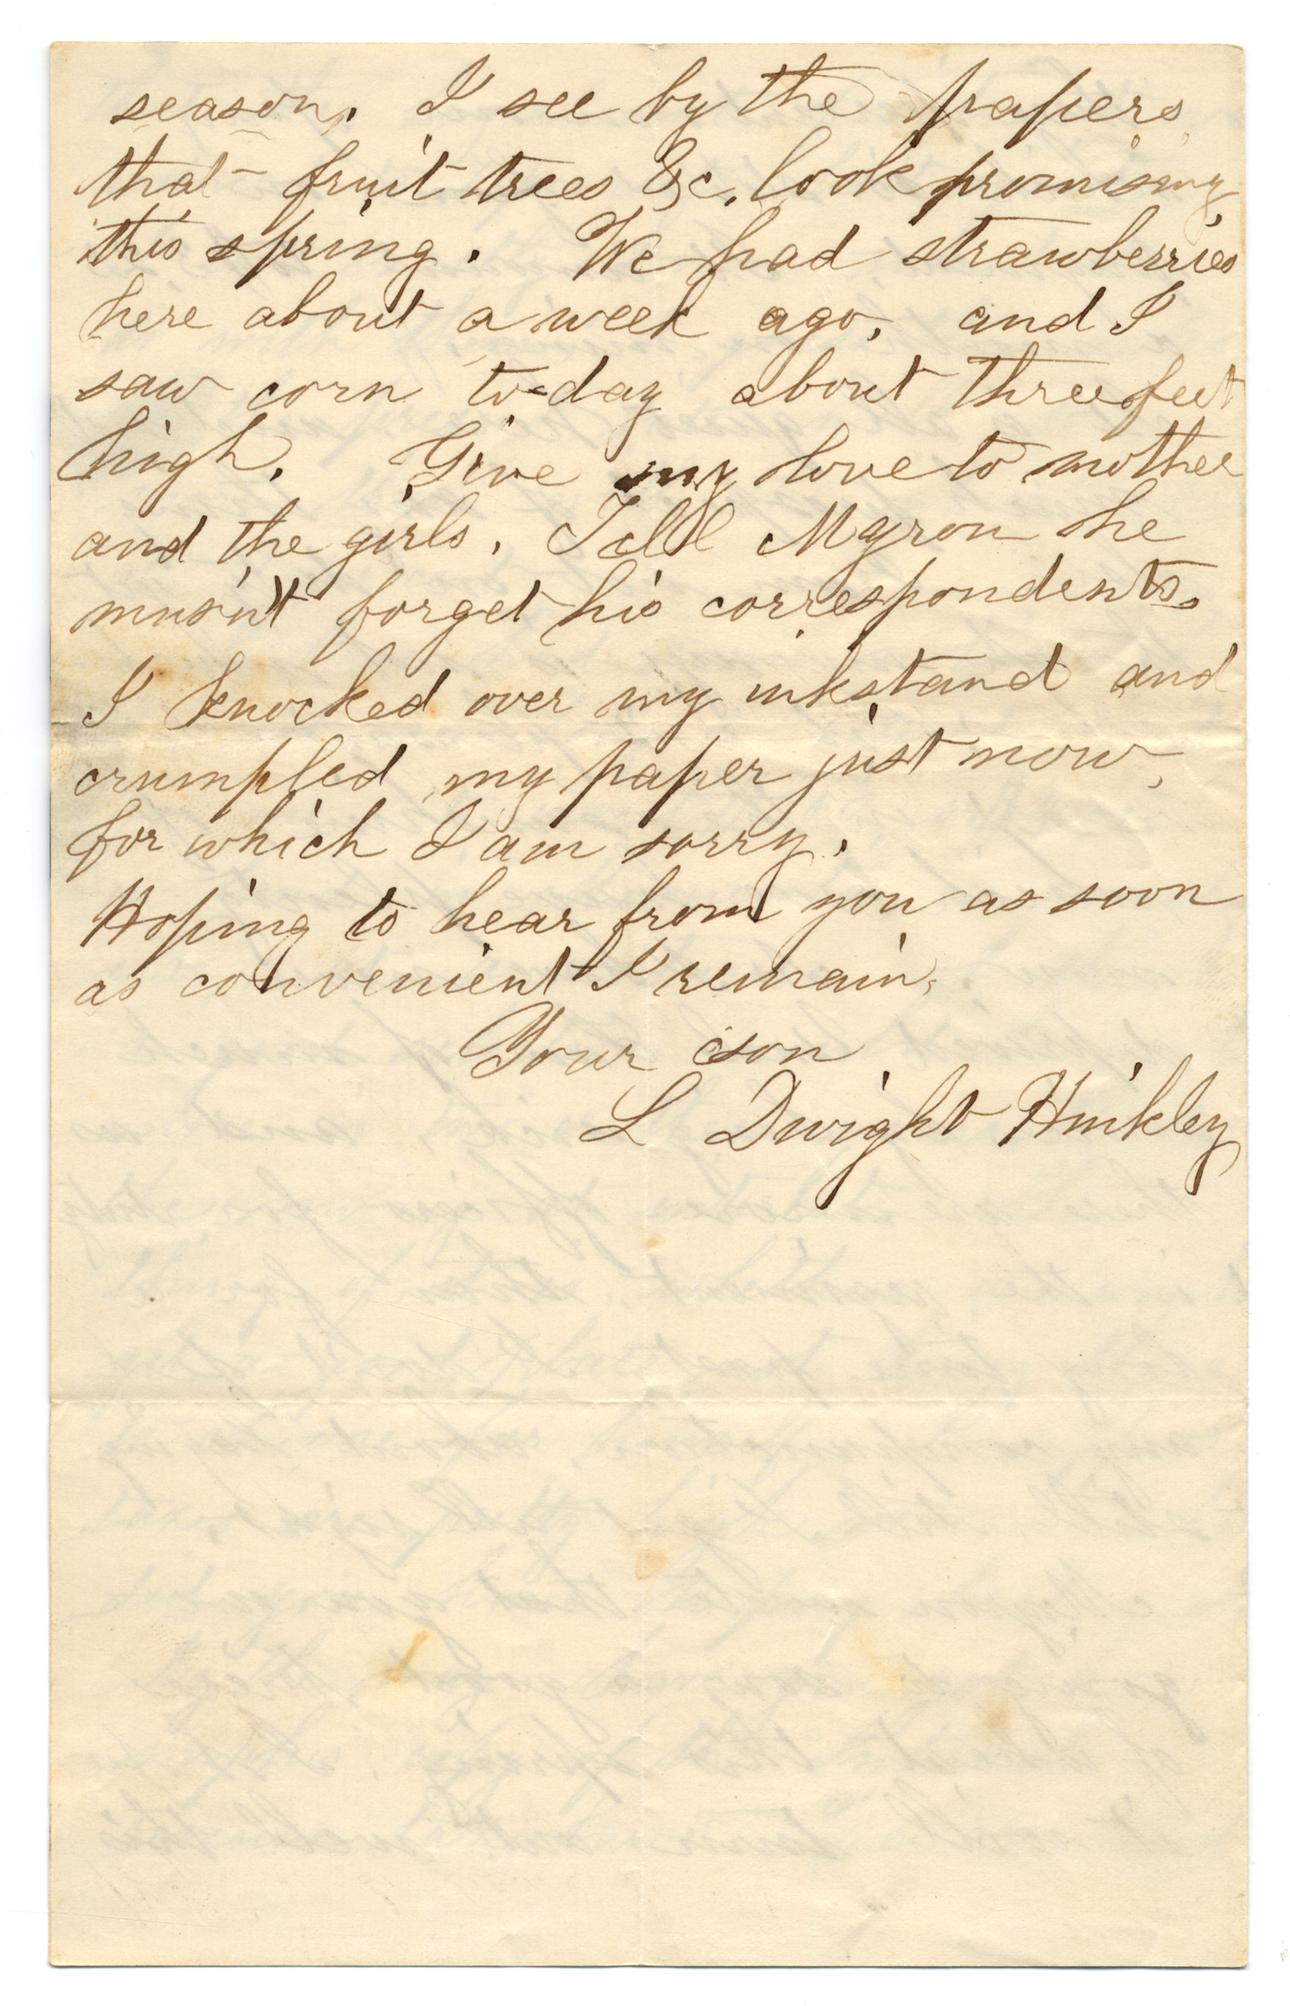 season. I see by the papers
that fruit trees &c. look promising
this spring. We had strawberries
here about a week ago, and I
saw corn to-day about three feet
high. Give my love to mother
and the girls. Tell Myron he
musn't forget his correspondents.
I knocked over my inkstand and
crumpled my paper just now,
for which I am sorry.
Hoping to hear from you as soon
as convenient I remain,
Your son
L Dwight Hinkley